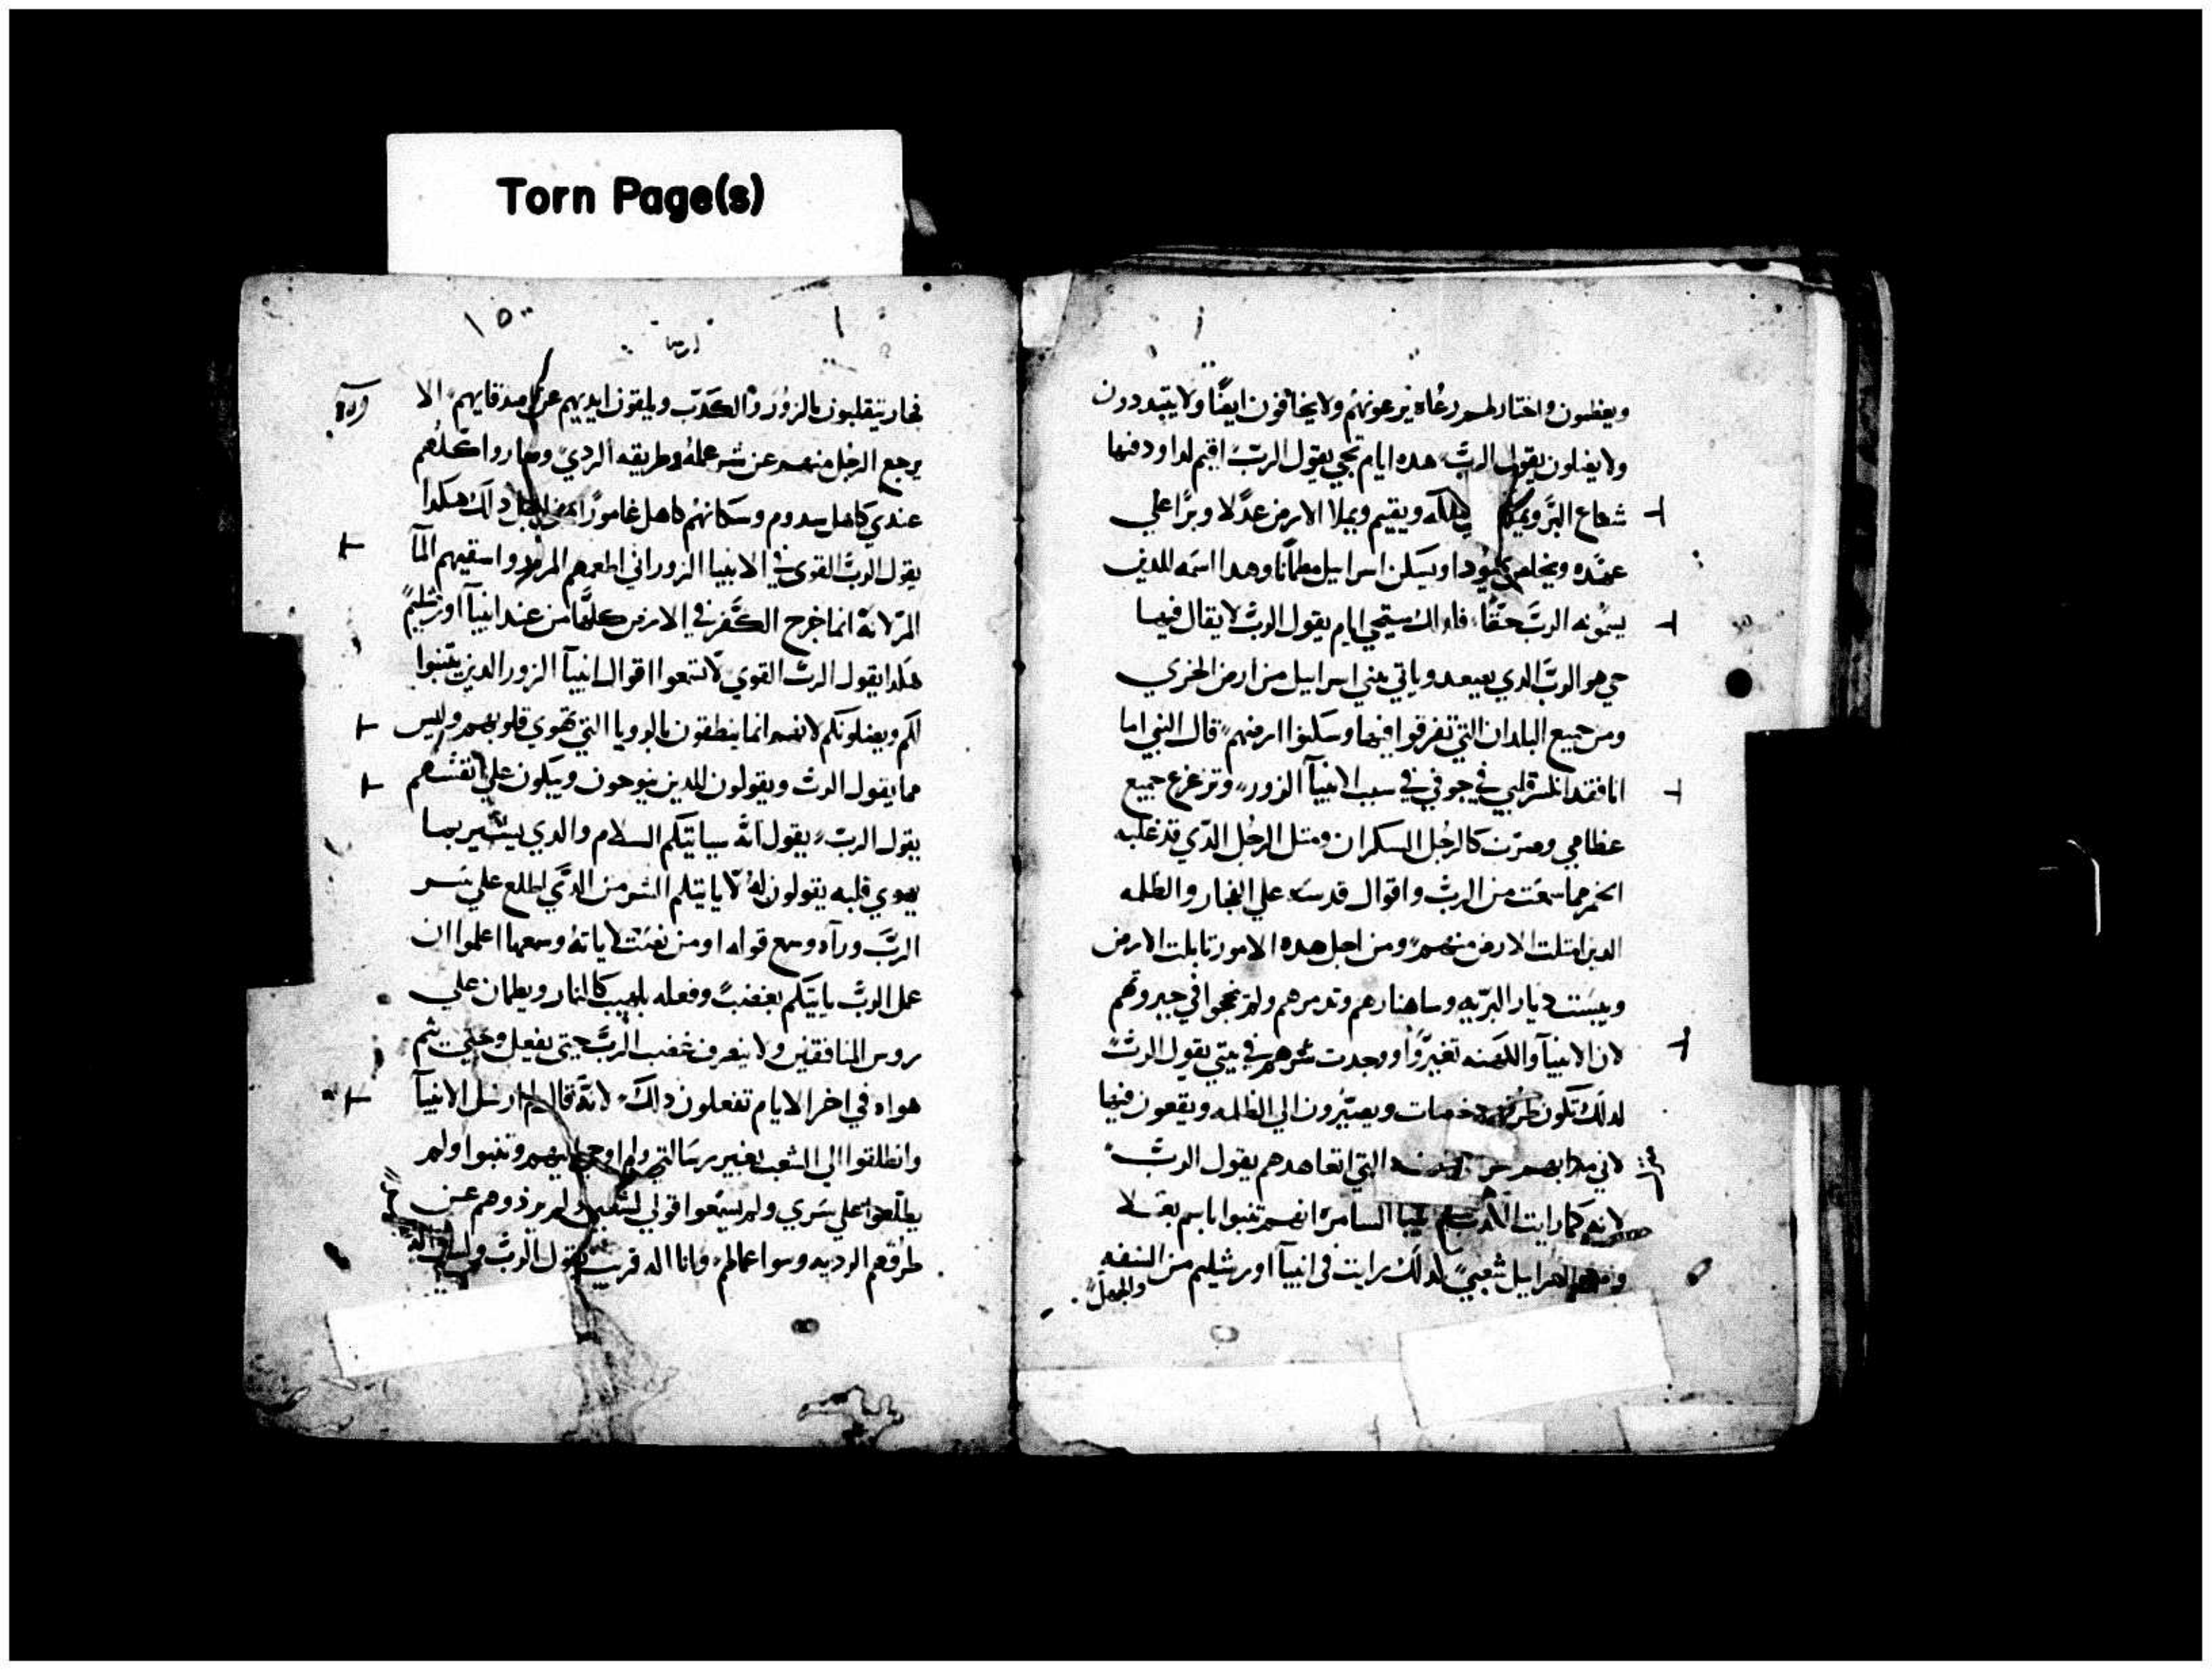 Torn Page(s)
ويعظمون واختار لهم رعاه يرعونهم ولا يخافون ايضًا ولا يتبددون
ولا يضلون يقول الربّ هده ايام تجي يقول الربّ اقيم لداود فيها
شعاع البرّ ويملك ويقيم ويملا الارض عدلا وبرًا علي
عهده ويخلص يهودا ويسكن اسراييل مطمانا وهدا اسمه الدي
يسمونه الربّ حقًا فلدلك ستجي ايام يقول الربّ لا يقال فيها
حي هو الربّ الدي يصعد وياتي ببني اسراييل من ارض الجزي
ومن جميع البلدان التي تفرقوا فيها وسكنوا ارضهم قال النبي اما
انا فقد انكسر قلبي في جوفي في سبب الانبيآ الزور وتزعزع جميع
عظامي وصرت كالرجل السكران ومثل الرجل الدي قد غلبه
الخمر مما سمعت من الربّ واقوال قدسه علي الفجار والظلمه
الدين امتلت الارض منهم ومن اجل هده الامور تابلت الارض
ويبست ديار البريه وساهنارهم وتدمرهم ولم ينجوا في جبروتهم
لان الانبيآ والكهنه تغيروا ووجدت شرهم في بيتي يقول الربّ
لدلك تكون طرقهم دحضات ويصيرون الي الظلمه ويقعون فيها
لاني التي اتعاهدهم يقول الربّ
لانه كما رايت انبيا السامره انهم تنبوا باسم بعلا
اسراييل شعبي لدلك رايت في انبيآ اورشليم من السفه
والجهل
ارميا
فجار يتقلبون بالزور والكدب ويلقون ايديهم عن اصدقايهم الا
يرجع الرجل منهم عن شر عمله وطريقه الردي وصاروا كلهم
عندي كاهل سدوم وسكانهم كاهل غامورا من اجل دلك هكدا
يقول الربّ القوي في الانبيا الزور اني اطعمهم المر واسقيهم المآ
المر لانه انما خرج الكفر في الارض كلها من عند انبيآ اورشليم
هكدا يقول الربّ القوي لا تسمعوا اقوال انبيآ الزور الدين يتنبوا
لكم ويضلونكم لانهم انما ينطقون بالرويا التي تهوي قلوبهم وليس
مما يقول الربّ ويقولون للدين ينوحون ويبكون علي انفسهم
يقول الربّ يقول انه سياتيكم السلام والدي يسير بما
يهوي قلبه يقولون له لا ياتيكم الشر من الدي اطلع علي سر
الربّ ورآه وسمع قوله او من نصت لاياته وسمعها اعلموا ان
عمل الربّ ياتيكم بغضب وفعله بلهيب كالنار ويطمان علي
روس المنافقين ولا ينصرف غضب الربّ حتي يفعل وحتي يتم
هواه في اخر الايام تفعلون دلك لانه قال لم ارسل الانبيآ
وانطلقوا الي الشعب بغير رسالتي ولم اوحي اليهم وتنبوا ولم
يطلعوا علي سري ولم يسمعوا قولي لشعبي ولم يرذوهم عن
طرقهم الرديه وسوا عمالهم وانا اله قريب يقول الربّ